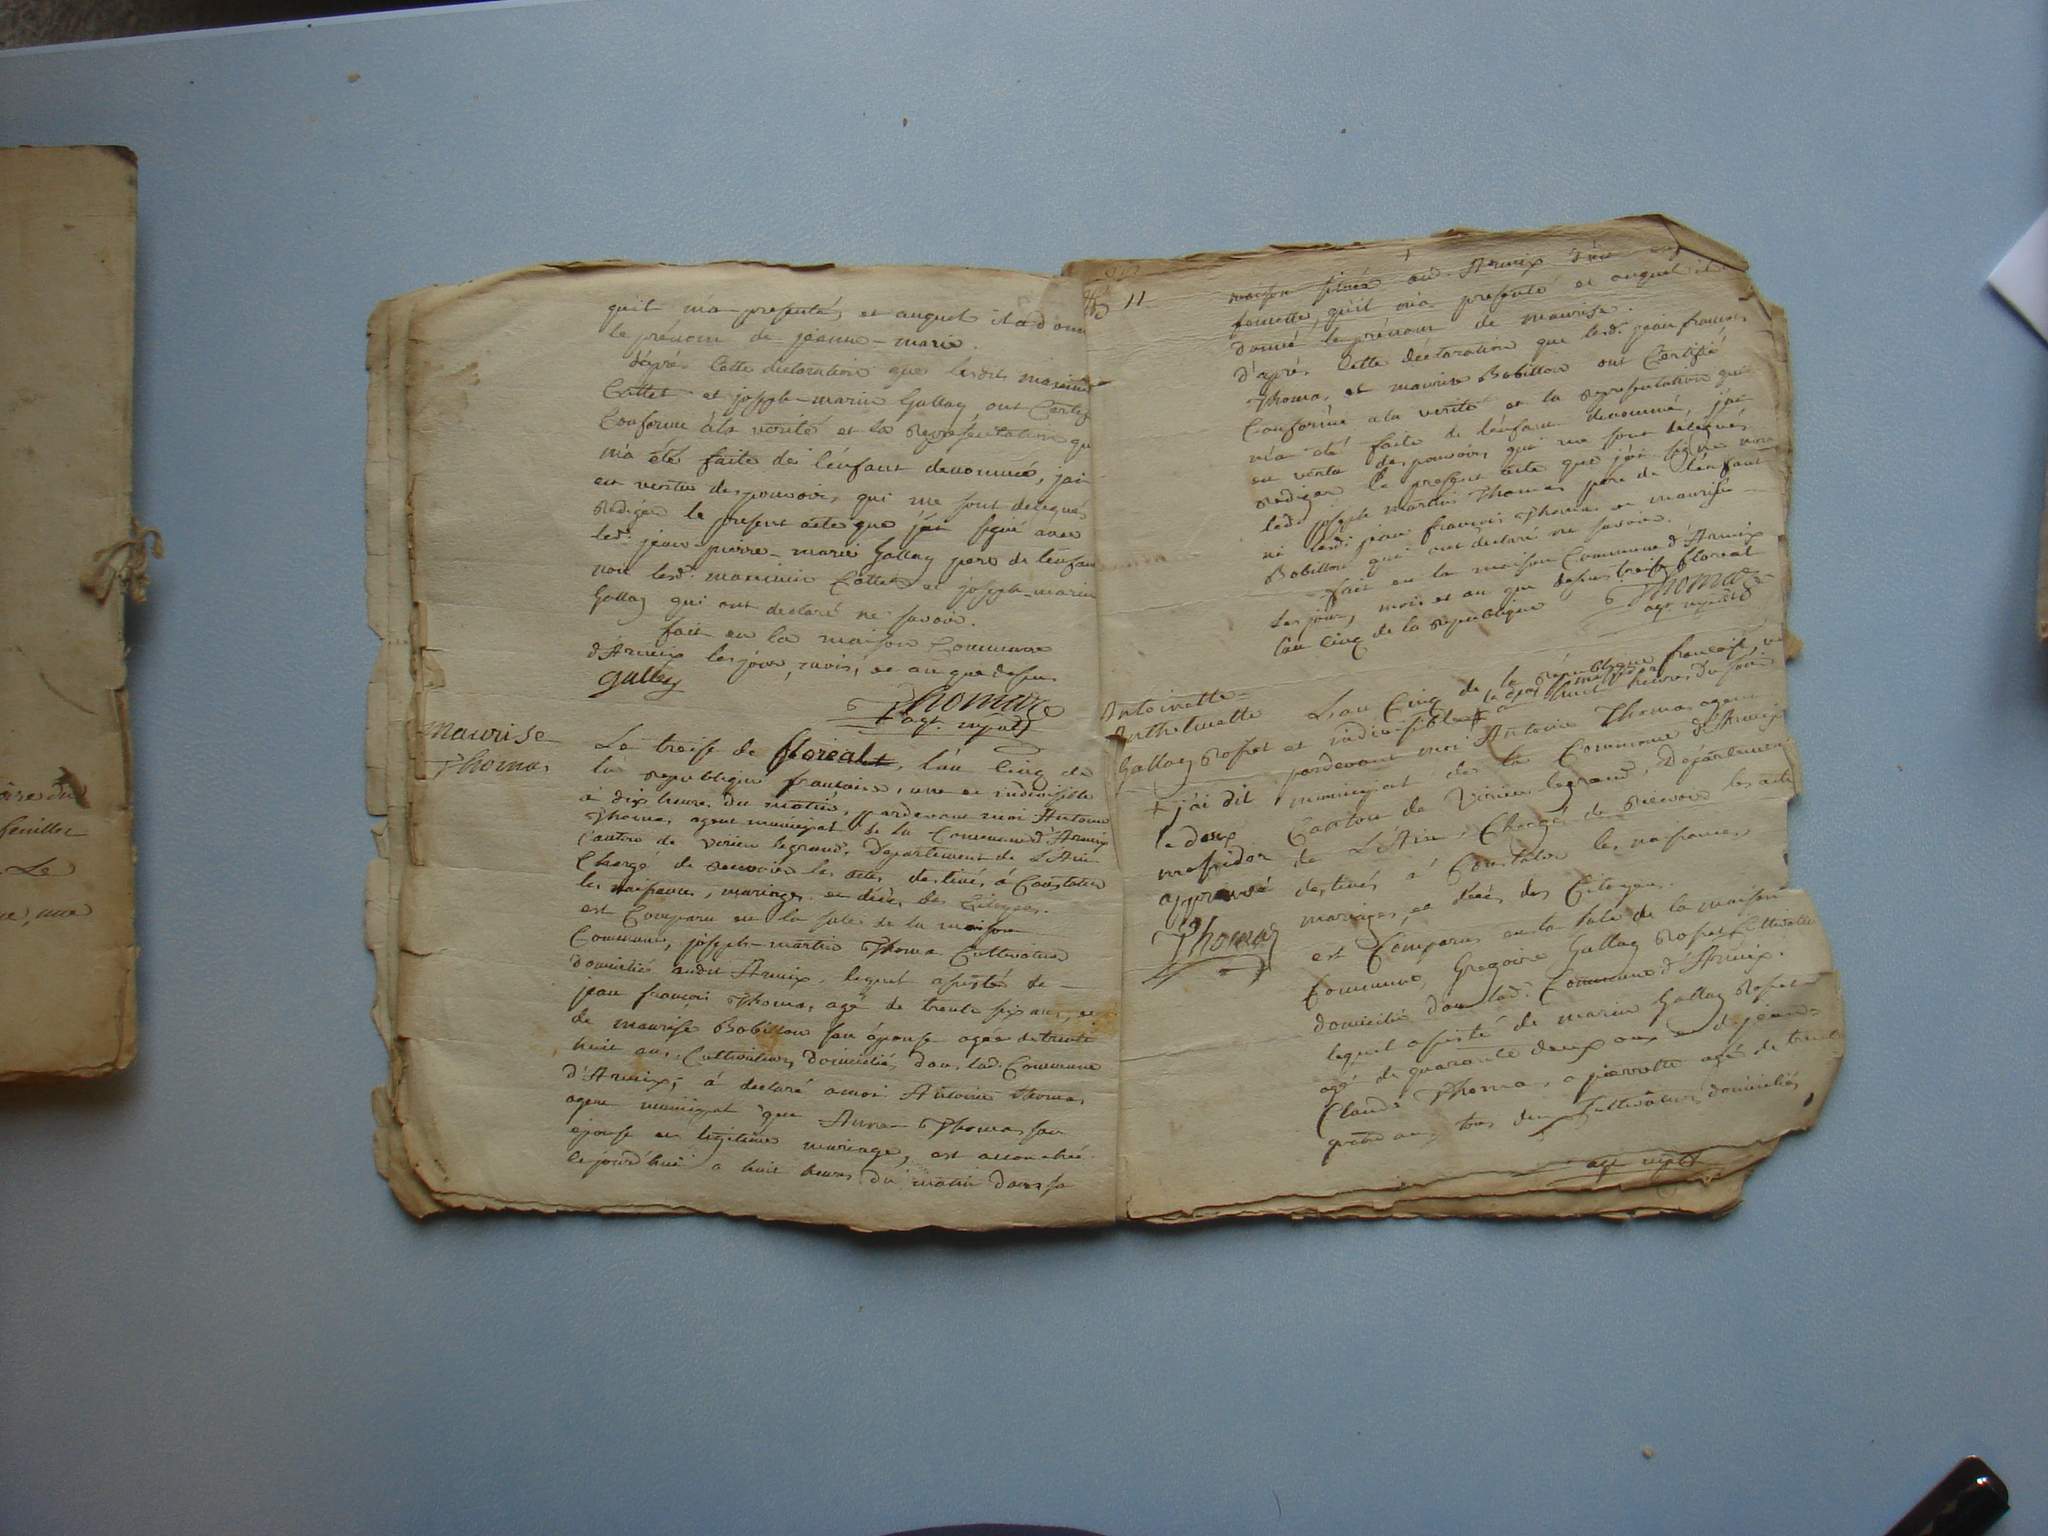 qu'il m'a presenté, et auquel il a donn
le prénom de jeanne-marie.
d'après cette declaration que lesdits maximin
Cottet et joseph-marin Gallay ont Certif
Conforme àla vérité et la representation qu
m'a été faite de l'enfant denommé, j'ai
en vertu des pouvoirs qui me sont delegués
rédigée le present acte que j'ai signé avec
led. jean-pierre-marie Gallay pere de l'enfan
non lesd. maximin Cottet et joseph-marin
Gallay qui ont declaré ne savoir.
fait en la maison Commune
d'Armix les jour, mois, et an que dessus
gallay
Thomas
agt. mpal
maurise
Thomas
Le treise de floréal, l'an cinq de
la république francaise, une et indivisible
à dix heures du matin, pardevant moi Antoine
Thomas agent municipal de la Commune d'Armix
Canton de Virieu legrand, Departement de L'Ain
Chargé de recevoir les actes destinés à Constater
les naissances, mariages et décès des Citoyens.
est Comparu en la sale de la maison
Commune, joseph-martin Thomas Cultivateur
domicilié audit Armix, lequel assisté de
jean françois Thomas, agé de trente six ans, et
de maurise Bobillon son épouse agée de trente
huit ans, Cultivateurs domiciliés dans lad. Commune
d'Armix, à declaré amoi Antoine Thomas
agent municipal que Anne Thomas son
épouse en légitime mariage, est accouchée
cejourd'hui a huit heures du matin dans sa
11
maison située aud. Armix d'un enf
femelle, qu'il m'a presenté et auquel il a
donné le prénom de maurise.
D'après cette déclaration que lesd. jean françois
Thomas, et maurise Bobillon ont Certifié
Conforme a la vérité et la représentation qui
m'a été faite de l'enfant denommé, j'ai
en vertu des pouvoirs qui me sont délégués
rédigée le present acte que j'ai signé non
led. joseph martin Thomas pere de l'enfant
ni lesd. jean françois Thomas et maurise
Bobillon qui ont declaré ne savoir.
fait en la maison Commune d'Armix
Les jour, mois et an que dessus treise floréal
l'an cinq de la république
Thomas
agt mpal
Antoinette
Anthelmette
Gallay Rosset
L'an Cinq de la république française, un
et indivisible + le deux messidor a huit heures du soir
pardevant moi Antoine Thomas agent
municipal de la Commune d'Armix
Canton de Virieu legrand, Departement
de L'Ain, Chargé de recevoir les actes
destinés à Constater les naissances,
mariages, et décès des Citoyens.
+ j'ai dit
le deux
messidor
approuvé
Thomas
est Comparu en la sale de la maison
Commune, Gregoire Gallay Rosset Cultivateur
domicilié dans lad. Commune d'Armix.
lequel assisté de marin Gallay Rosset
agé de quarante deux ans et d jean
Claude Thomas a pierrette agé de trente
quatre ans, tous deux Cultivateurs domiciliés
agt mpal